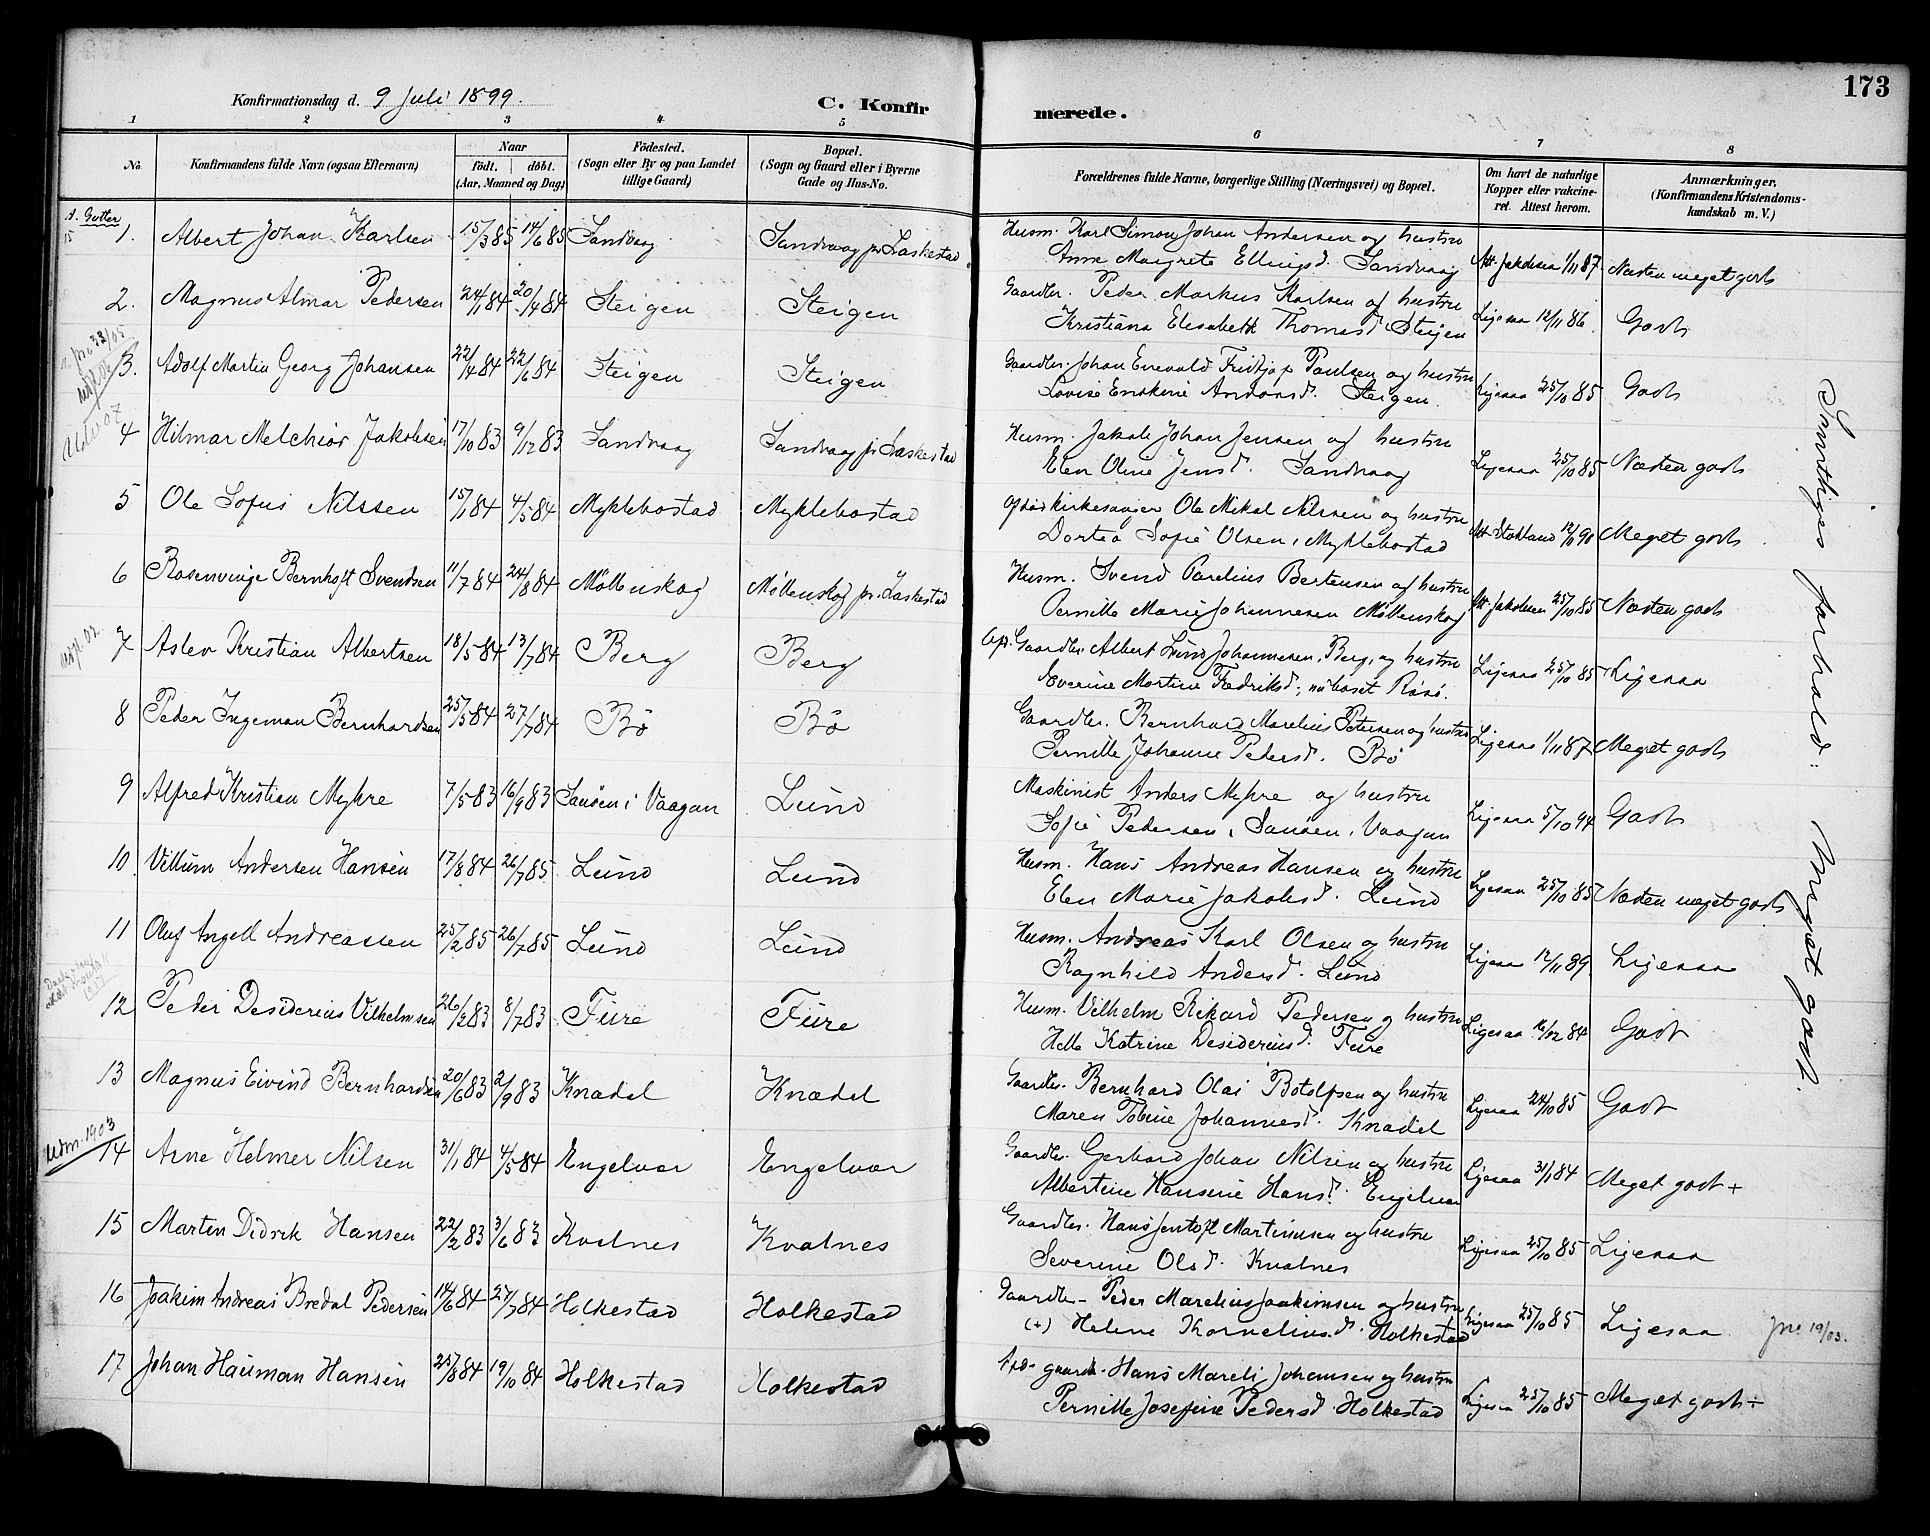 173
Konfirmationsdag d. 9 Juli 1899. C. Konfirmerede.
1 2 3 4 5 6 7 8
No. Konfirmandens fulde Navn (ogsaa Efternavn) Naar født. døbt. (Aar, Maaned og Dag) Födested. (Sogn eller By og paa Landet tillige Gaard) Bopæl. (Sogn og Gaard eller i Byerne Gade og Hus-No. Forældrenes fulde Navne, borgerlige Stilling (Næringsvei) og Bopæl. Om havt de naturlige Kopper eller vakcineret. Attest herom. Anmærkninger. (Konfirmandens Kristendomskundskab m. V.)
Gutter
1. Albert Johan Karlsen 15/3 85 14/6 85 Sandvaag Sandvaag pr. Laskestad Husm. Karl Simon Johan Andersen og hustru
Anne Margrete Ellingsd. Sandvaag Att. Jakobsen 1/11 87 Næsten meget godt
2. Magnus Almar Pedersen 24/1 84 20/4 84 Steigen Steigen Gaardbr. Peder Markus Karlsen og hustru
Kristiana Elisabeth Thomasd. Steigen Ligesaa 12/11 86. Godt
3. Adolf Martin Georg Johansen 22/4 84 22/6 84 Steigen Steigen Gaardbr. Johan Enevald Fridtjop Paulsen og hustru
Lovise Enskine Andorsd. Steigen Ligesaa 25/10 85 Godt
4 Hilmar Melchior Jakobsen 17/10 83 9/12 83 Sandvaag Sandvaag pr Laskestad Husm. Jakob Johan Jensen og hustru
Elen Oline Jensd. Sandvaag Ligesaa 25/10 85 Næsten godt
5 Ole Sofus Nilssen 15/1 84 4/5 84 Myklebostad Myklebostad Kirkesanger Ole Mikal Nilssen og hustru
Dortea Sofie Olsen, Myklebostad Att. Stokland 12/10 90 Meget godt
6 Rosenvinge Bernhoft Svendsen 11/7 84 24/8 84 Möllenskog Möllenskog pr. Laskestad Husm. Svend Parelius Bertensen og hustru
Pernille Marie Johannesen Möllenskog Att. Jakobsen 25/10 85 Næsten godt
7 Aslev Kristian Albertsen 18/5 84 13/7 84 Berg Berg Gaardbr. Albert Lund Johannesen, Berg, og hustru
Everine Martine Fredriksd., nu boset Rössö. Ligesaa 25/10 85 Ligesaa
8 Peder Ingeman Bernhardsen 25/5 84 27/7 84 Bö Bö Gaardbr. Bernhard Marelius Petersen og hustru
Pernille Johanne Pedersd. Bö Ligesaa 1/11 87 Meget godt
9 Alfred Kristian Myhre 7/5 83 16/9 83 Sausen i Vaagan Lund Maskinist Anders Myhre og hustru
Sofie Pedersen, Sausen, Vaagan Ligesaa 5/10 94 Godt
10 Villum Andersen Hansen 17/8 84 26/7 85 Lund Lund Husm. Hans Andreas Hansen og hustru
Elen Marie Jakobsd. Lund Ligesaa 25/10 85 Næsten meget godt
11 Oluf Angell Andreassen 25/2 85 26/7 85 Lund Lund Husm. Andreas Karl Olsen og hustru
Ragnhild Andersd. Lund Ligesaa 12/11 89 Ligesaa
12 Peder Desiderius Vilhelmsen 26/2 83 8/7 83 Fure Fure Husm. Vilhelm Rikard Pedersen og hustru
Helle Katrine Desideriusd. Fure Ligesaa 16/12 84 Godt
13 Magnus Eivind Bernhardsen 20/6 83 2/9 83 Knædal Knædal Gaardbr. Bernhard Olai Botolfsen og hustru
Maren Tobine Johannesd. Knædal Ligesaa 24/10 85 Godt
Udm. 1903
14 Arne Helmer Nilsen 31/1 84 4/5 84 Engelvær Engelvær Gaardbr. Gerhard Johan Nilsen og hustru
Albertine Hansine Hansd. Engelvær Ligesaa 31/1 84 Meget godt +
15 Martin Didrik Hansen 22/2 83 3/6 83 Kvalnes Kvalnes Gaardbr. Hans Jentoft Martinusen og hustru
Severine Olsd. Kvalnes Ligesaa 25/10 85 Ligesaa
16 Joakim Andreas Bredal Pedersen 14/6 84 27/7 84 Holkestad Holkestad Gaardbr. Peder Marelius Joakimsen og hustru
(+) Helene Korneliusd. Holkestad Ligesaa 25/10 85 Ligesaa 19/03.
17 Johan Hauman Hansen 25/8 84 19/10 84 Holkestad Holkestad gaardb. Hans Mareli Johansen og hustru
Pernille Josefine Pedersd. Holkestad Ligesaa 25/10 85 Meget godt ÷
Samtliges forhold: Meget godt.